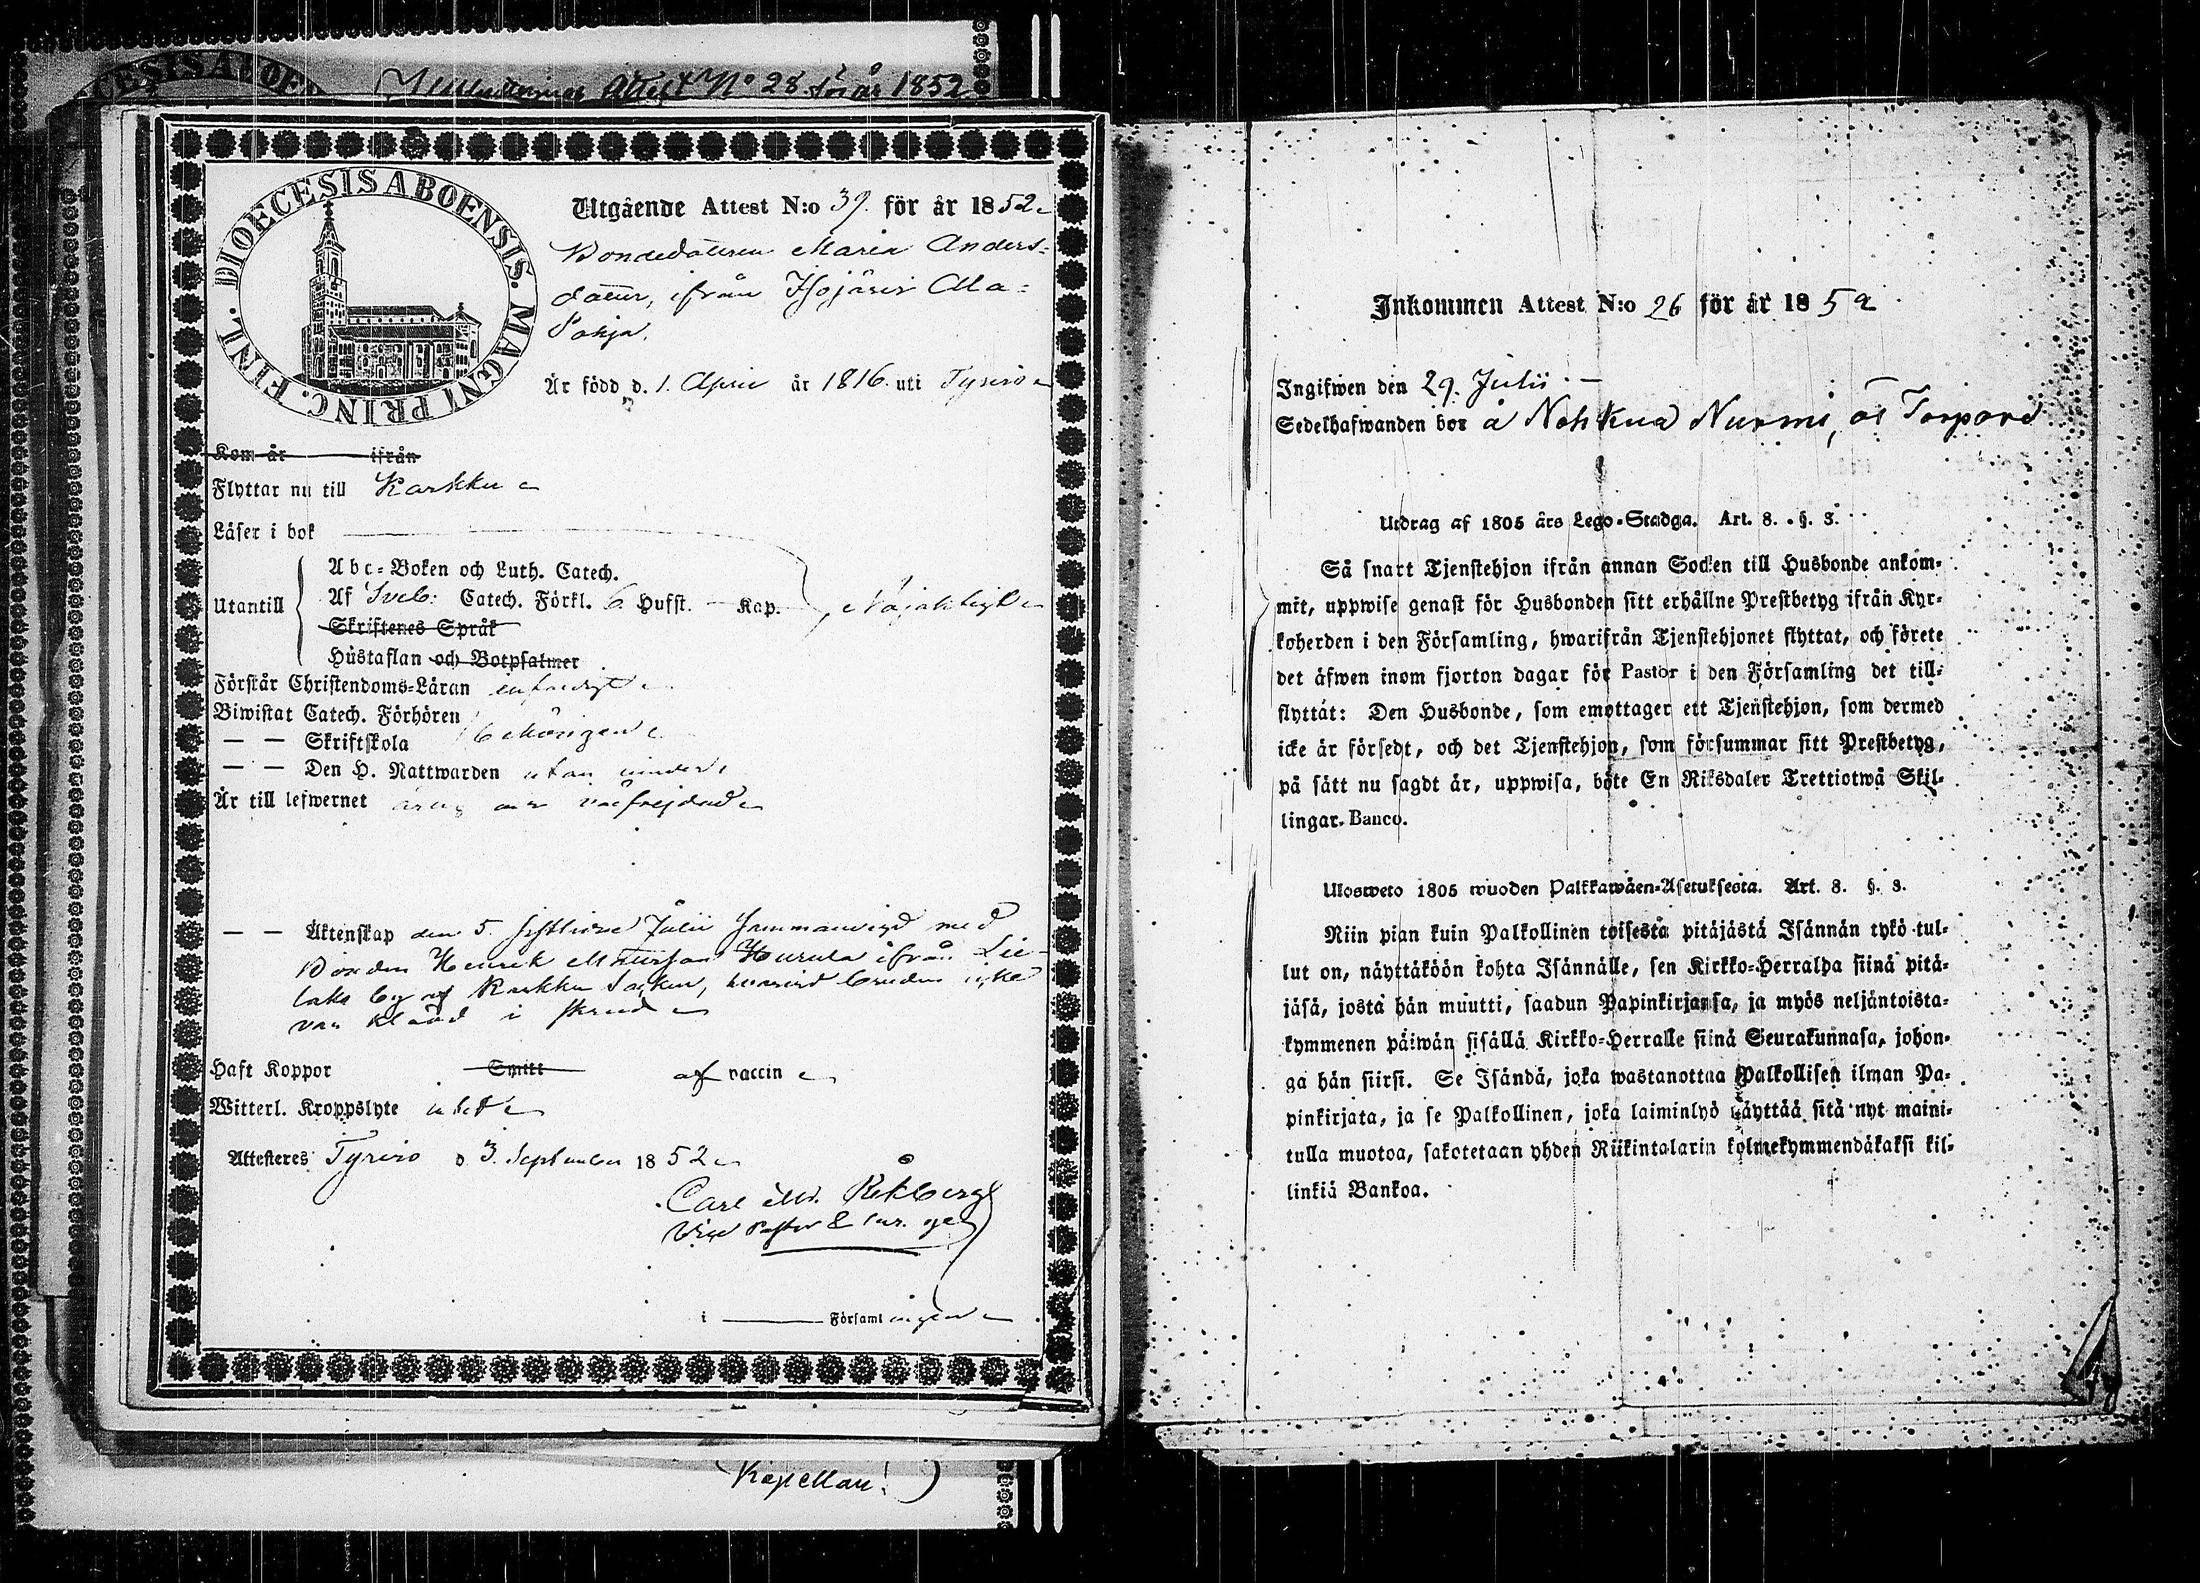 Attest No 28 för år 1852
DIOECESIS ABOENSIS. MAGNI PRINC. FINL.
Utgående Attest N:o 39. för år 1852
Bondedottren Maria Anders-
dotter, ifrån Isojärvi Ala-
Pohja.
Är född d. 1. April år 1816 uti Tyrvis
Kom år ifrån
Flyttar nu till Karkku
Läser i bok
Abc-Boken och Luth. Catech.
Utantill Af Sveb: Catech. Förkl. 6 Hufst. — Kap. Nöjaktigt
Skriftenes Språk
Hustaflan och Botpsalmer
Förstår Christendoms-Läran enfaldigt
Biwistat Catech. Förhören
— — Skriftskola behörigen
— — Den H. Nattwarden utan hinder
Är till lefwernet ärlig och välfrejdad
— — Äktenskap den 5. sistledne Julii sammanvigd med
Bonden Henrik Mattsson Hurula ifrån Lie-
laks by af Karkku Socken, hvarvid bruden icke
var klädd i skrud
Haft Koppor Smitt af vaccin
Witterl. Kroppslyte intet
Attesteras Tyrvis d 3. September 1852
Carl Rekberg
Vice Pastor &
i Församlingen
Kapellan.
Inkommen Attest N:o 26 för år 1852
Ingifwen den 29. Julii
Sedelhafwanden bor å Nohkua Nurmi, Torpare
Utdrag af 1805 års Lego-Stadga. Art. 8. §. 3.
Så snart Tjenstehjon ifrån annan Socken till Husbonde ankom-
mit, uppwise genast för Husbonden sitt erhållne Prestbetyg ifrån Kyr-
koherden i den Församling, hwarifrån Tjenstehjonet flyttat, och förete
det äfwen inom fjorton dagar för Pastor i den Församling det till-
flyttat: Den Husbonde, som emottager ett Tjenstehjon, som dermed
icke är försedt, och det Tjenstehjon, som försummar sitt Prestbetyg,
på sätt nu sagdt är, uppwisa, böte En Riksdaler Trettiotwå Skil-
lingar Banco.
Ulosweto 1805 wuoden Palkkawäen-Asetuksesta. Art. 8. §. 3.
Niin pian kuin Palkollinen toisesta pitäjästä Isännän tykö tul-
lut on, näyttäköön kohta Isännälle, sen Kirkko-Herralda siinä pitä-
jäsä, josta hän muutti, saadun Papinkirjansa, ja myös neljäntoista-
kymmenen päiwän sisällä Kirkko-Herralle siinä Seurakunnasa, johon-
ga hän siirsi. Se Isändä, joka wastanottaa Palkollisen ilman Pa-
pinkirjata, ja se Palkollinen, joka laiminlyö näyttää sitä nyt maini-
tulla muotoa, sakotetaan yhden Riikintalarin kolmekymmendäkaksi kil-
linkiä Bankoa.